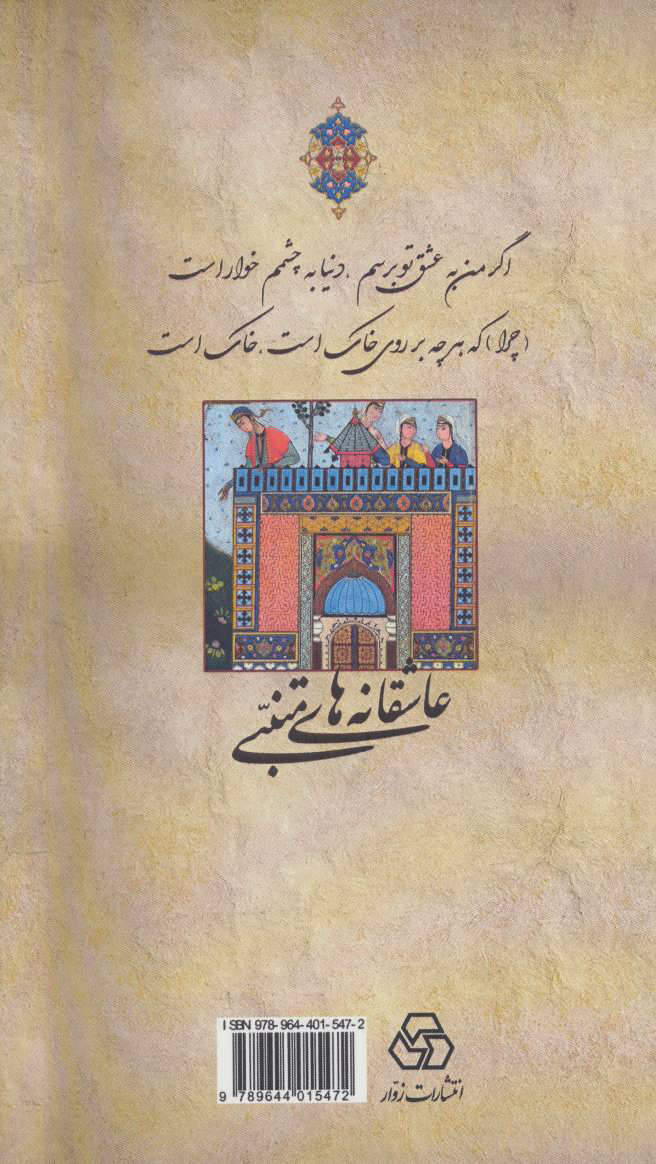 اگر من به عشق تو برسم ، دنیا به چشمم خوار است
(چرا) که هرچه بر روی خاک است ، خاک است
عاشقانه های متنبّی
ISBN 978-964-401-547-2
9 789644 015472
انتشارات زوّار